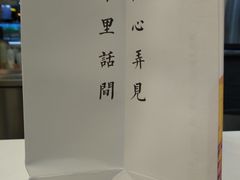 心弄見
里話間